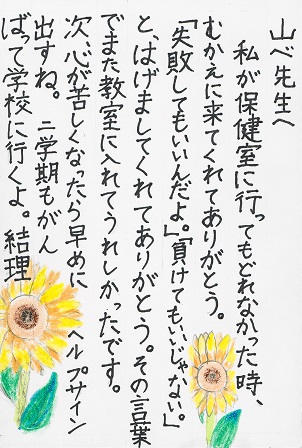 山べ先生へ
私が保健室に行ってもどれなかった時、
むかえに来てくれてありがとう。
「失敗してもいいんだよ。」「負けてもいいじゃない。」
と、はげましてくれてありがとう。その言葉
でまた教室に入れてうれしかったです。
次、心が苦しくなったら早めにヘルプサイン
出すね。二学期もがん
ばって学校に行くよ。結理